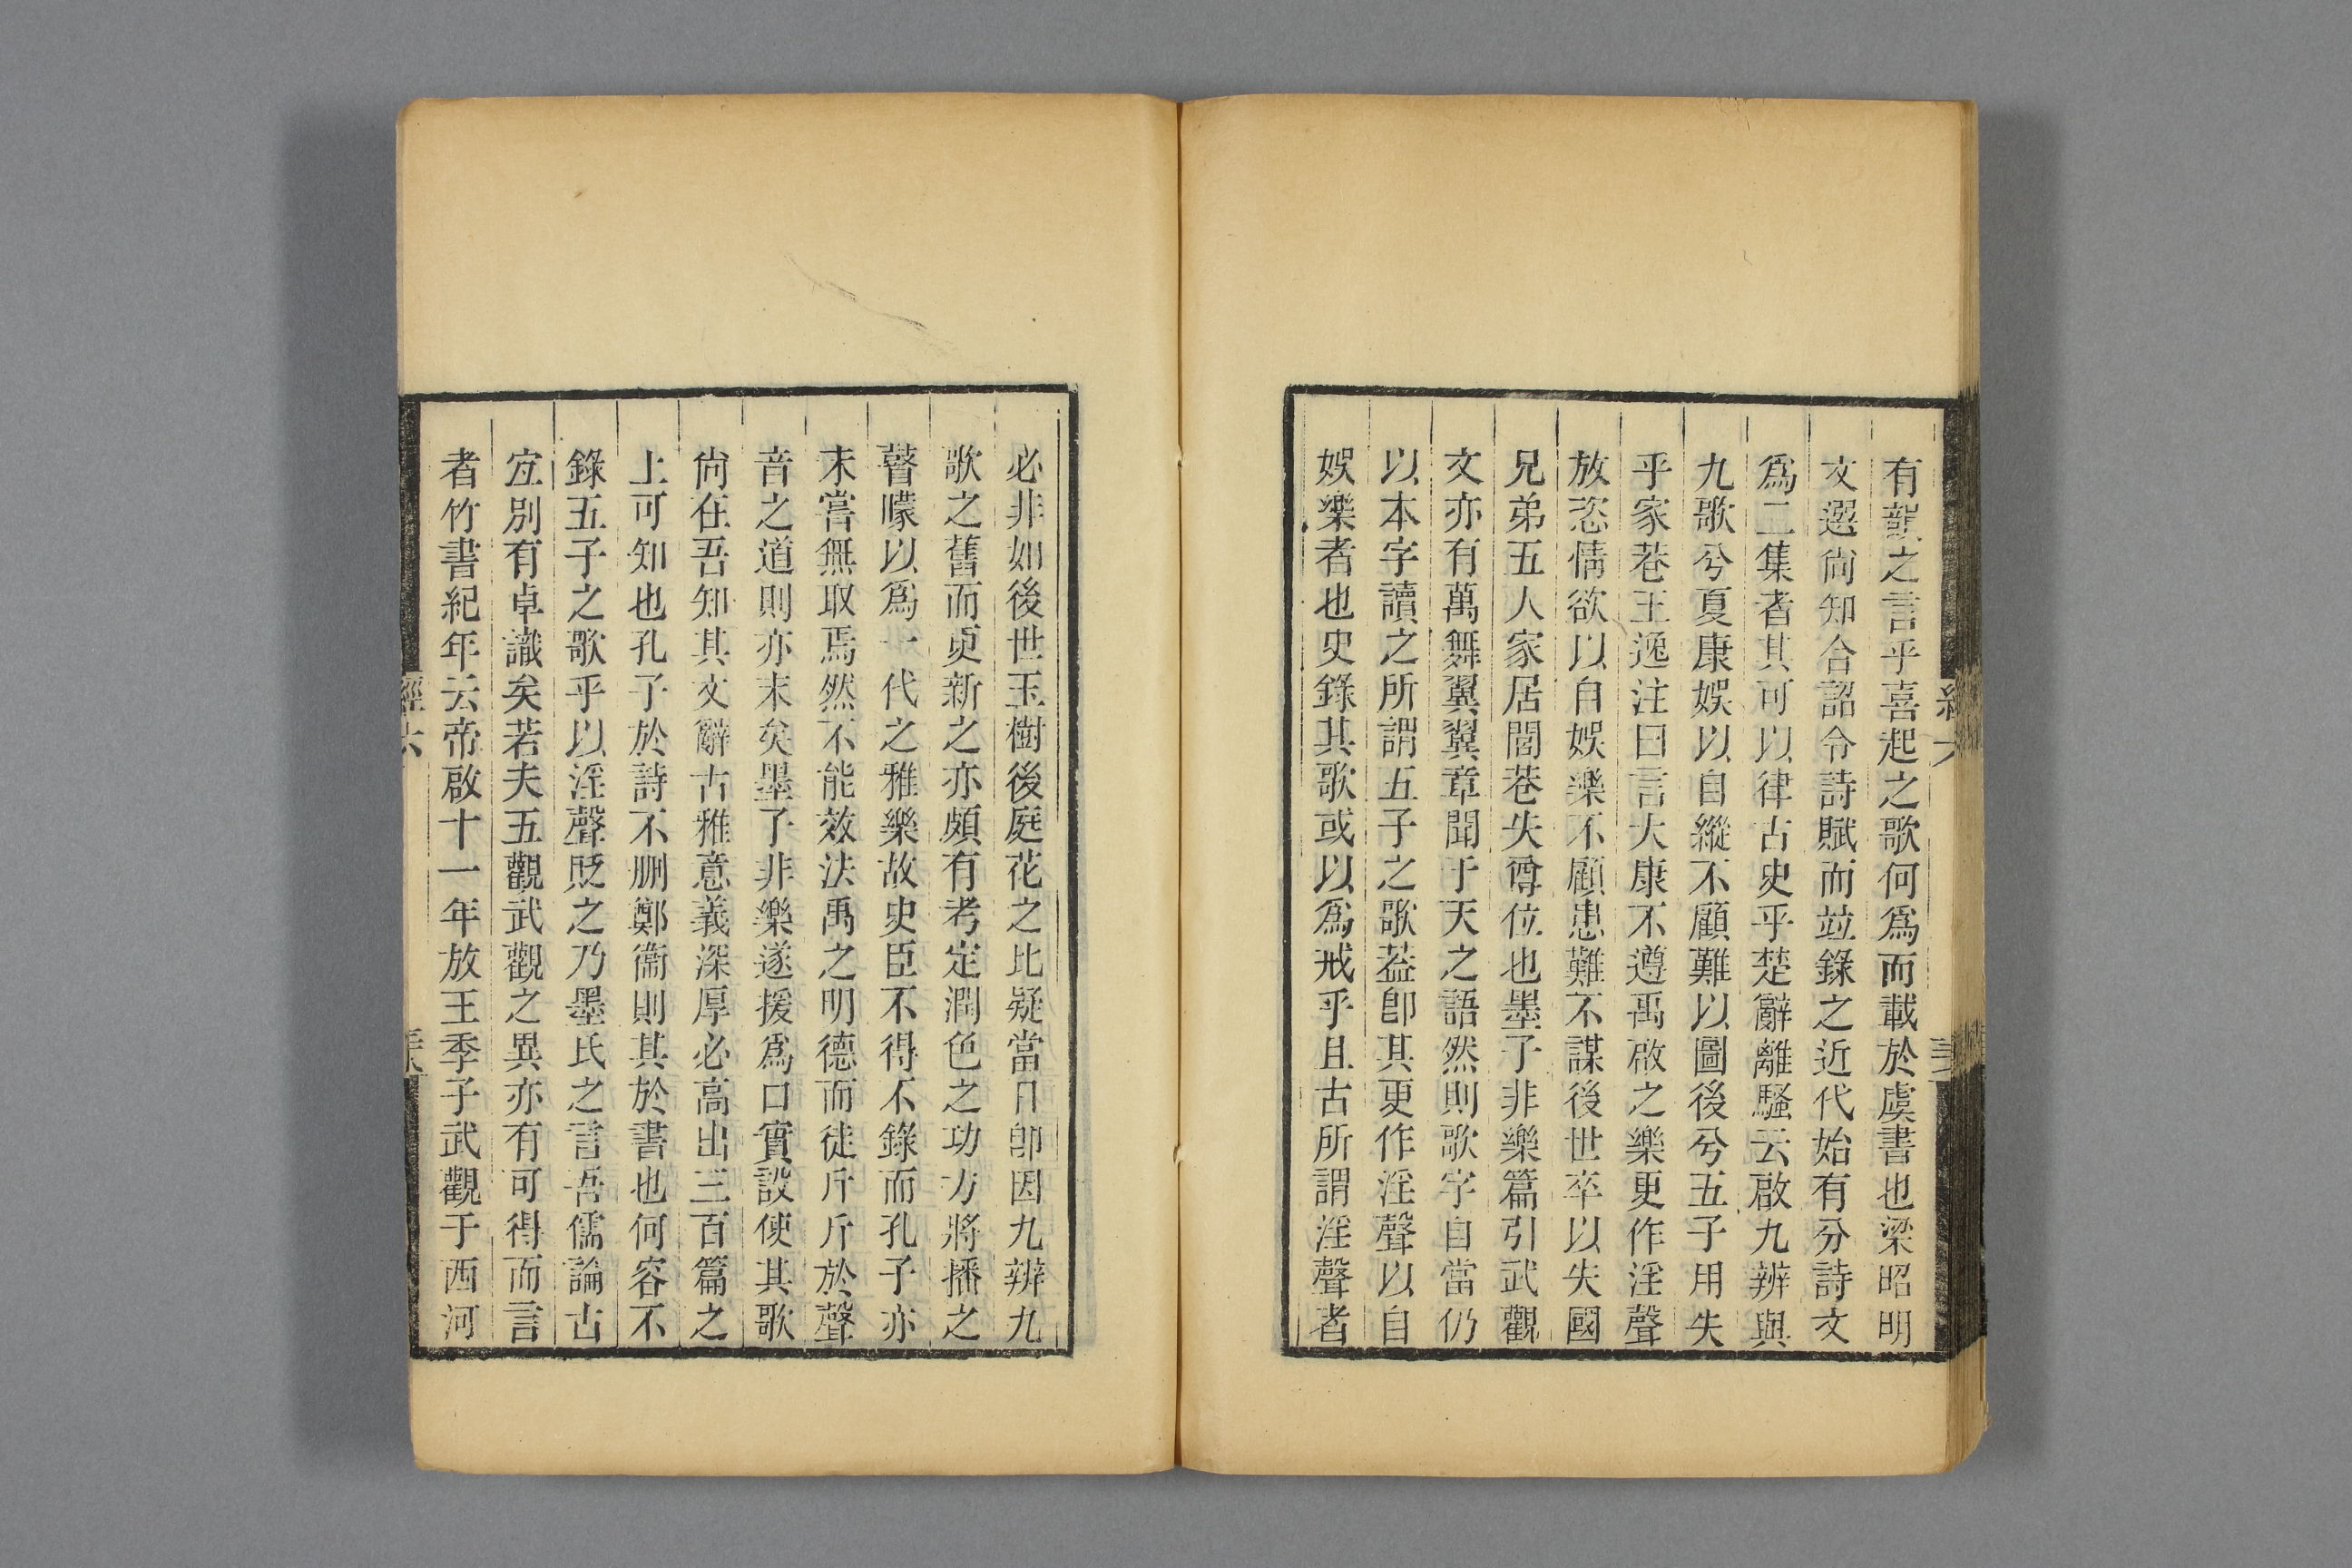 有龔之言乎喜起之歌何爲而載於虞書也梁昭明
文選尙知合詔令詩賦而竝錄之近代始有分詩文
爲二集者其可以律古史乎楚辭離騷云啟九辨與
九歌兮夏康娛以自縱不顧難以圖後兮五子用失
乎家巷王逸注曰言大康不遵禹啟之樂更作淫聲
放恣情欲以自娛樂不顧患難不謀後世卒以失國
兄弟五人家居閭巷失尊位也墨子非樂篇引武觀
文亦有萬舞翼翼章聞于天之語然則歌字自當仍
以本字讀之所謂五子之歌葢卽其更作淫聲以自
娛樂者也史錄其歌或以爲戒乎且古所謂淫聲者
必非如後世玉樹後庭花之比疑當日卽因九辨九
歌之舊而更新之亦頗有考定潤色之功方將播之
瞽矇以爲一代之雅樂故史臣不得不錄而孔子亦
未嘗無取焉然不能效法禹之明德而徒斤斤於聲
音之道則亦末矣墨子非樂遂援爲口實設使其歌
尙在吾知其文辭古雅意義深厚必高出三百篇之
上可知也孔子於詩不刪鄭衞則其於書也何容不
錄五子之歌乎以淫聲貶之乃墨氏之言吾儒論古
宜別有卓識矣若夫五觀武觀之異亦有可得而言
者竹書紀年云帝啟十一年放王季子武觀于西河
經六